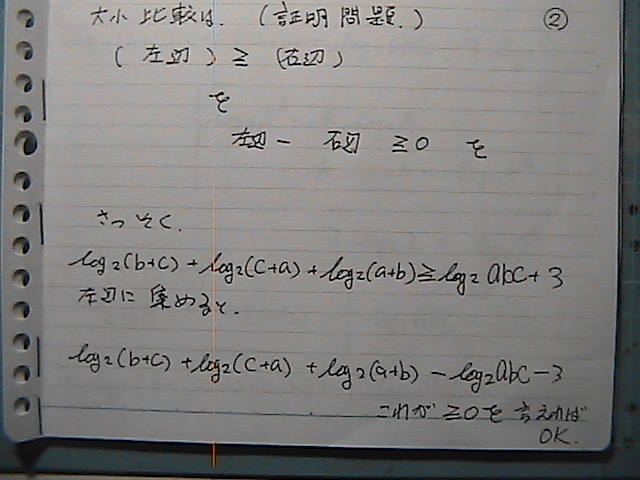 大小比較は、(証明問題.) ②
(左辺) ≧ (右辺)
を
左辺 - 右辺 ≧0 を
さっそく.
log₂(b+c) + log₂(c+a) + log₂(a+b) ≧ log₂abc + 3
左辺に集めると、
log₂(b+c) + log₂(c+a) + log₂(a+b) - log₂abc - 3
これが ≧0を言えれば
OK.